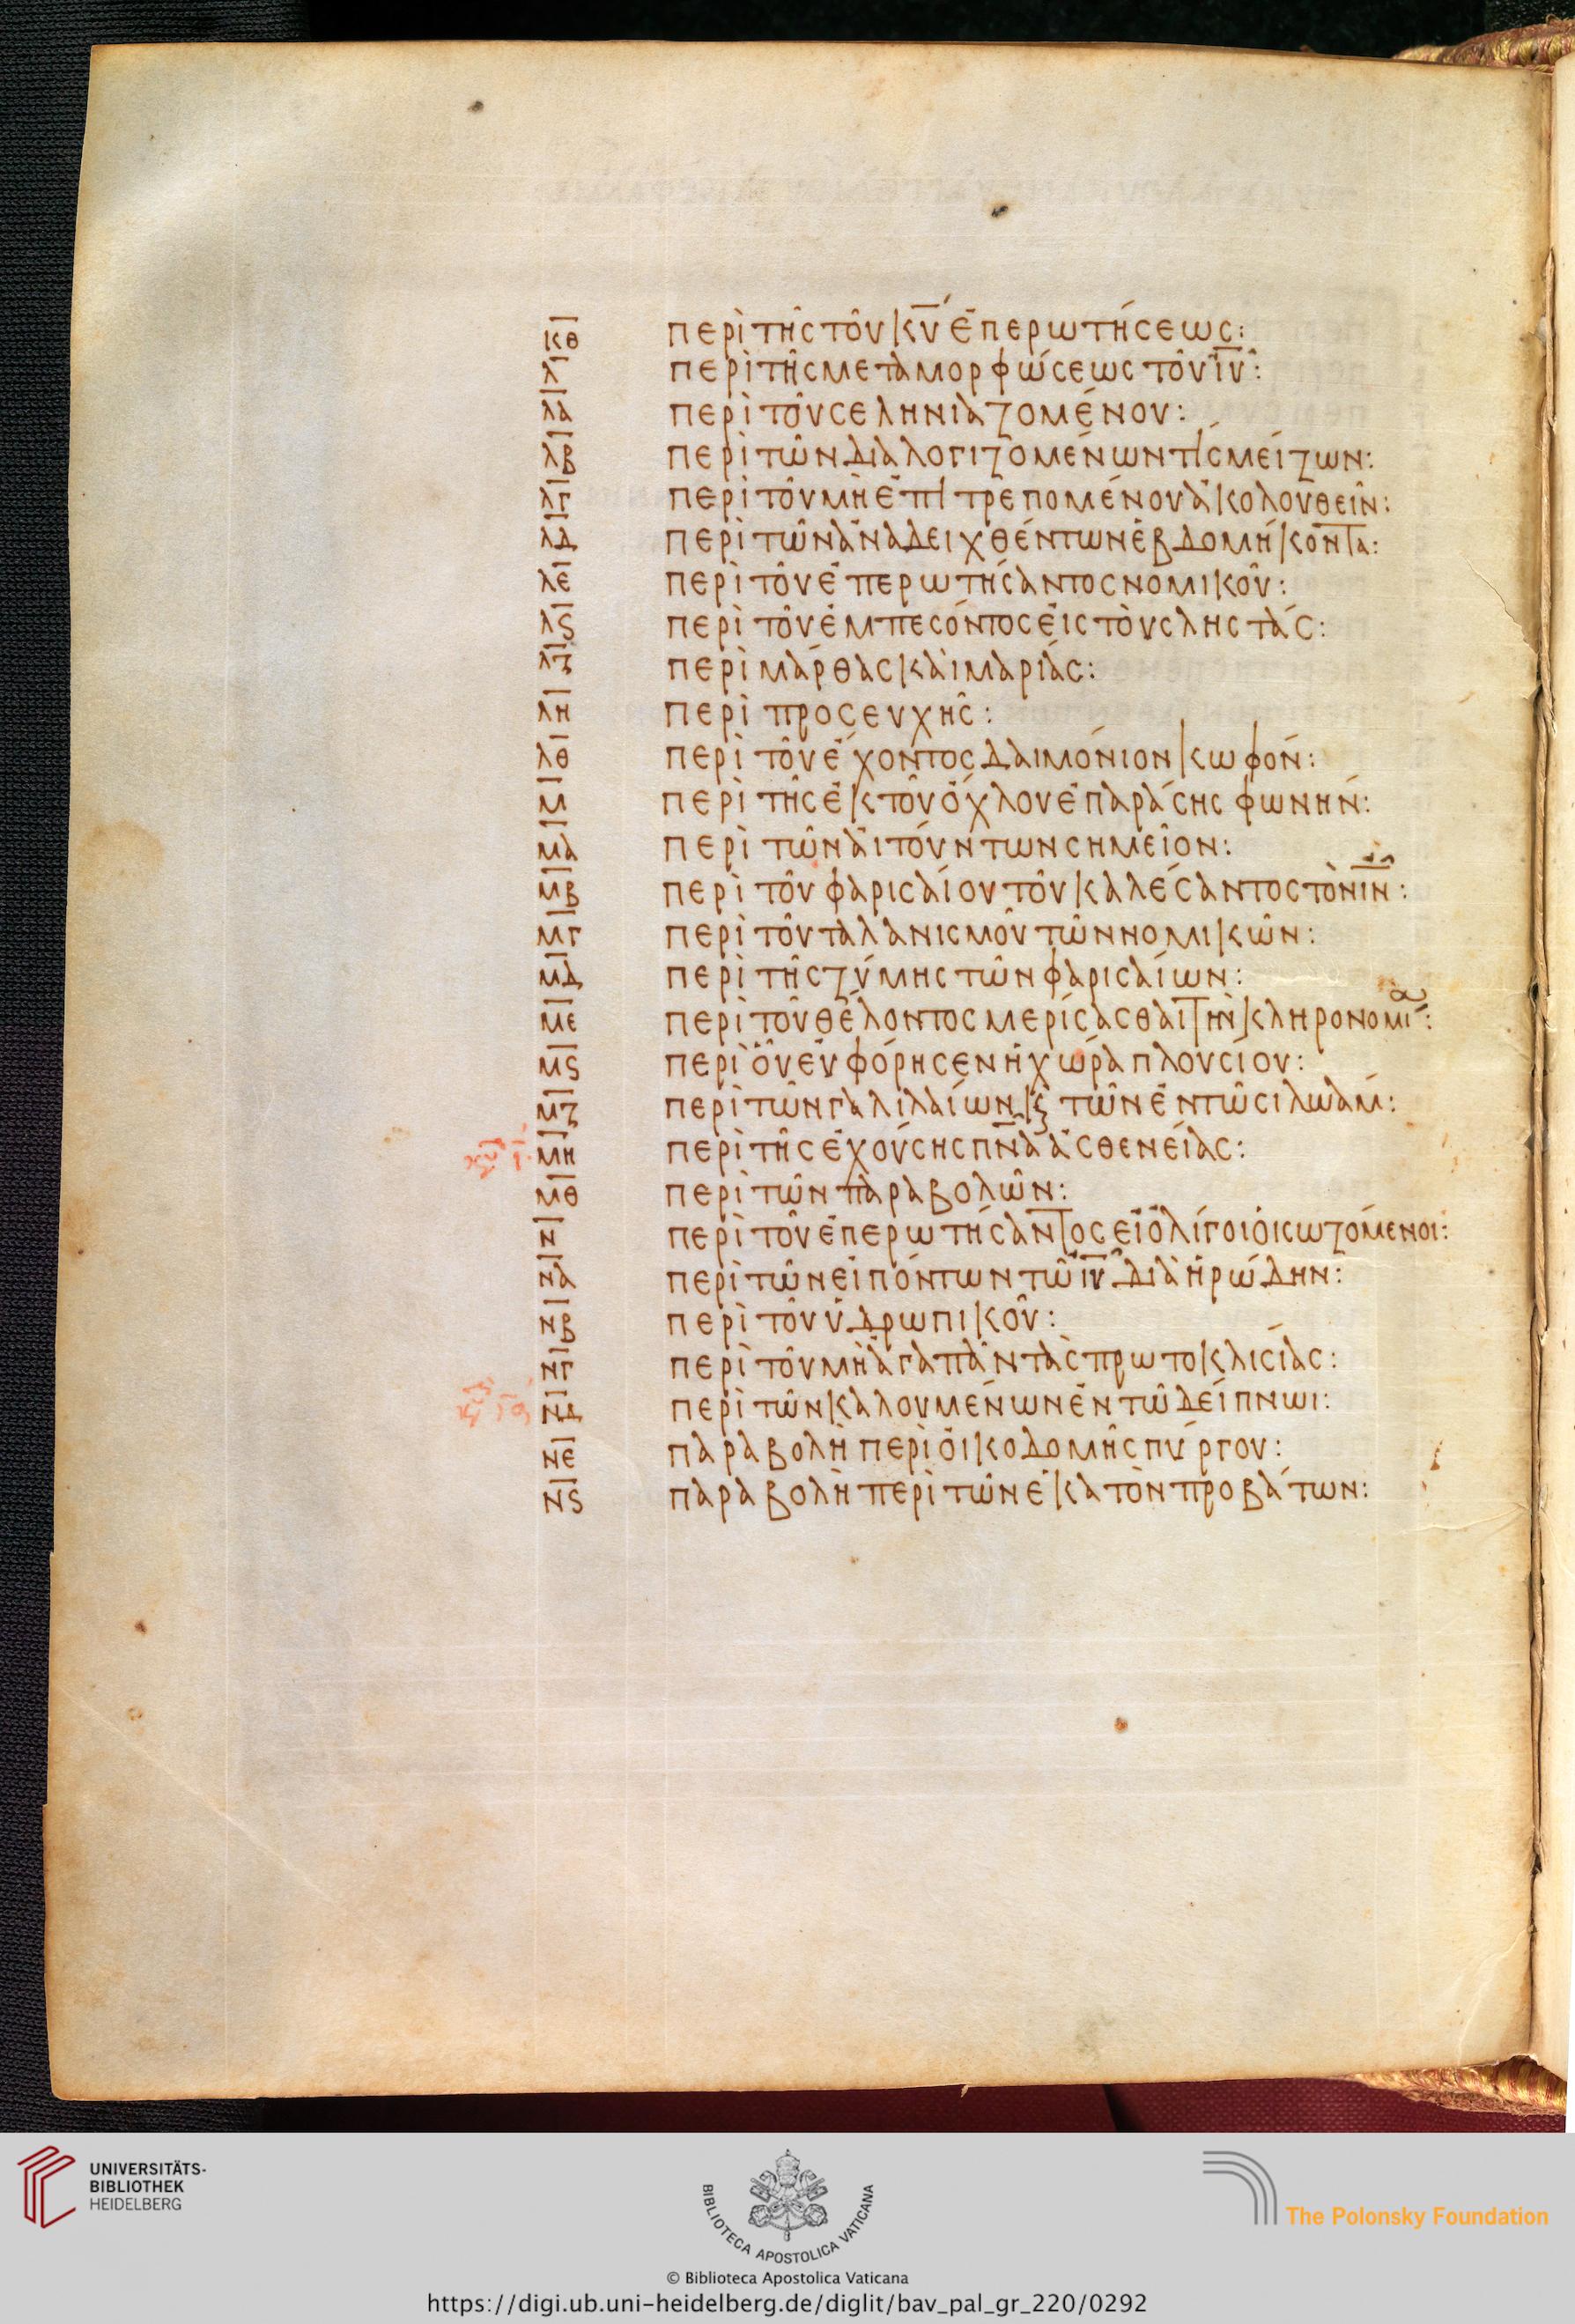 κθ περὶ τῆς τοῦ κυ ἐπερωτήσεως:
λ περὶ τῆς μεταμορφώσεως τοῦ ιυ:
λα περὶ τοῦ σεληνιαζομένου:
λβ περὶ τῶν διαλογιζομένων τίς μείζων:
λγ περὶ τοῦ μὴ ἐπιτρεπομένου ἀκολουθεῖν:
λδ περὶ τῶν ἀναδειχθέντων ἑβδομήκοντα:
λε περὶ τοῦ ἐπερωτήσαντος νομικοῦ:
λς περὶ τοῦ ἐμπεσόντος εἰς τοὺς ληστάς:
λζ περὶ μάρθας καὶ μαρίας:
λη περὶ προσευχῆς:
λθ περὶ τοῦ ἔχοντος δαιμόνιον κωφόν:
μ περὶ τῆς ἐκ τοῦ ὄχλου ἐπαράσης φωνήν:
μα περὶ τῶν αἰτούντων σημεῖον:
μβ περὶ τοῦ φαρισαίου τοῦ καλέσαντος τὸν ιν:
μγ περὶ τοῦ ταλανισμοῦ τῶν νομικῶν:
μδ περὶ τῆς ζύμης τῶν φαρισαίων:
με περὶ τοῦ θέλοντος μερίσασθαι τὴν κληρονομία:
μς περὶ οὗ εὐφόρησεν ἡ χώρα πλουσίου:
μζ περὶ τῶν γαλιλαίων κ τῶν ἐν τῶ σιλωάμ:
μη περὶ τῆς ἐχούσης πνα ἀσθενείας:
μθ περὶ τῶν παραβολῶν:
ν περὶ τοῦ ἐπερωτήσαντος εἰ ὀλίγοι οἱ σωζόμενοι:
να περὶ τῶν εἰπόντων τῶ ιυ διὰ ἡρώδην:
νβ περὶ τοῦ ὑδρωπικοῦ:
νγ περὶ τοῦ μὴ ἀγαπᾶν τὰς πρωτοκλισίας:
νδ περὶ τῶν καλουμένων ἐν τῶ δείπνωι:
νε παραβολὴ περὶ οἰκοδομῆς πύργου:
νς παραβολὴ περὶ τῶν ἑκατὸν προβάτων:
UNIVERSITÄTS-
BIBLIOTHEK
HEIDELBERG
BIBLIOTECA APOSTOLICA VATICANA
The Polonsky Foundation
© Biblioteca Apostolica Vaticana
https://digi.ub.uni-heidelberg.de/diglit/bav_pal_gr_220/0292